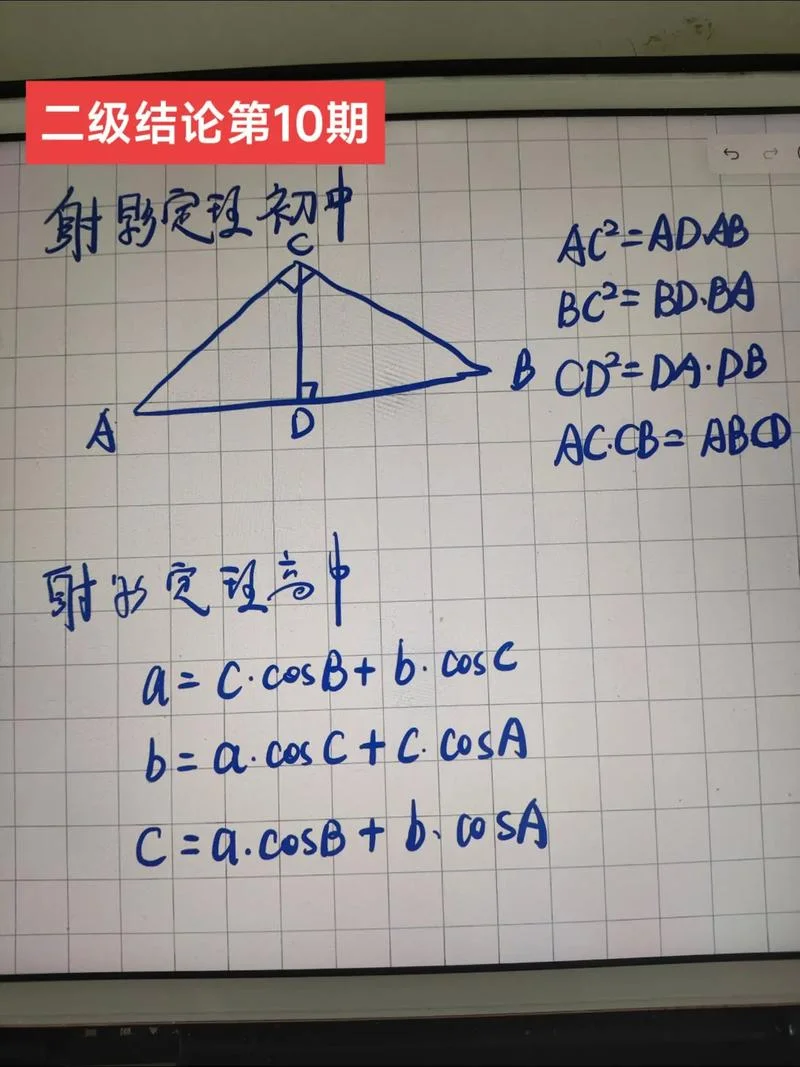 二级结论第10期
射影定理初中
C
A
D
B
AC²=AD·AB
BC²=BD·BA
CD²=DA·DB
AC·CB=ABCD
射影定理高中
a=c·cosB+b·cosC
b=a·cosC+c·cosA
C=a·cosB+b·cosA